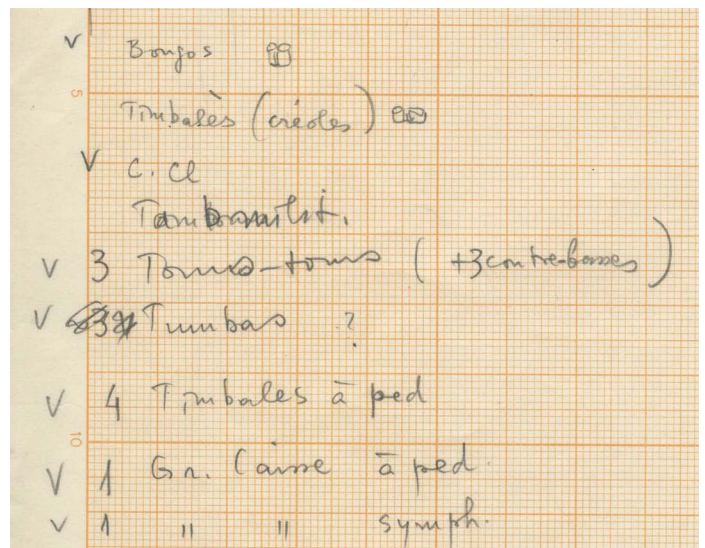 v Bongos
5
Timbalès (créoles)
V C. Cl
Tambour milit.
V 3 Toms-toms (+3 contre-basses)
V Tumbas ?
V 4 Timbales à ped
10
V 1 Gr. Caisse à ped.
V 1 " " symph.